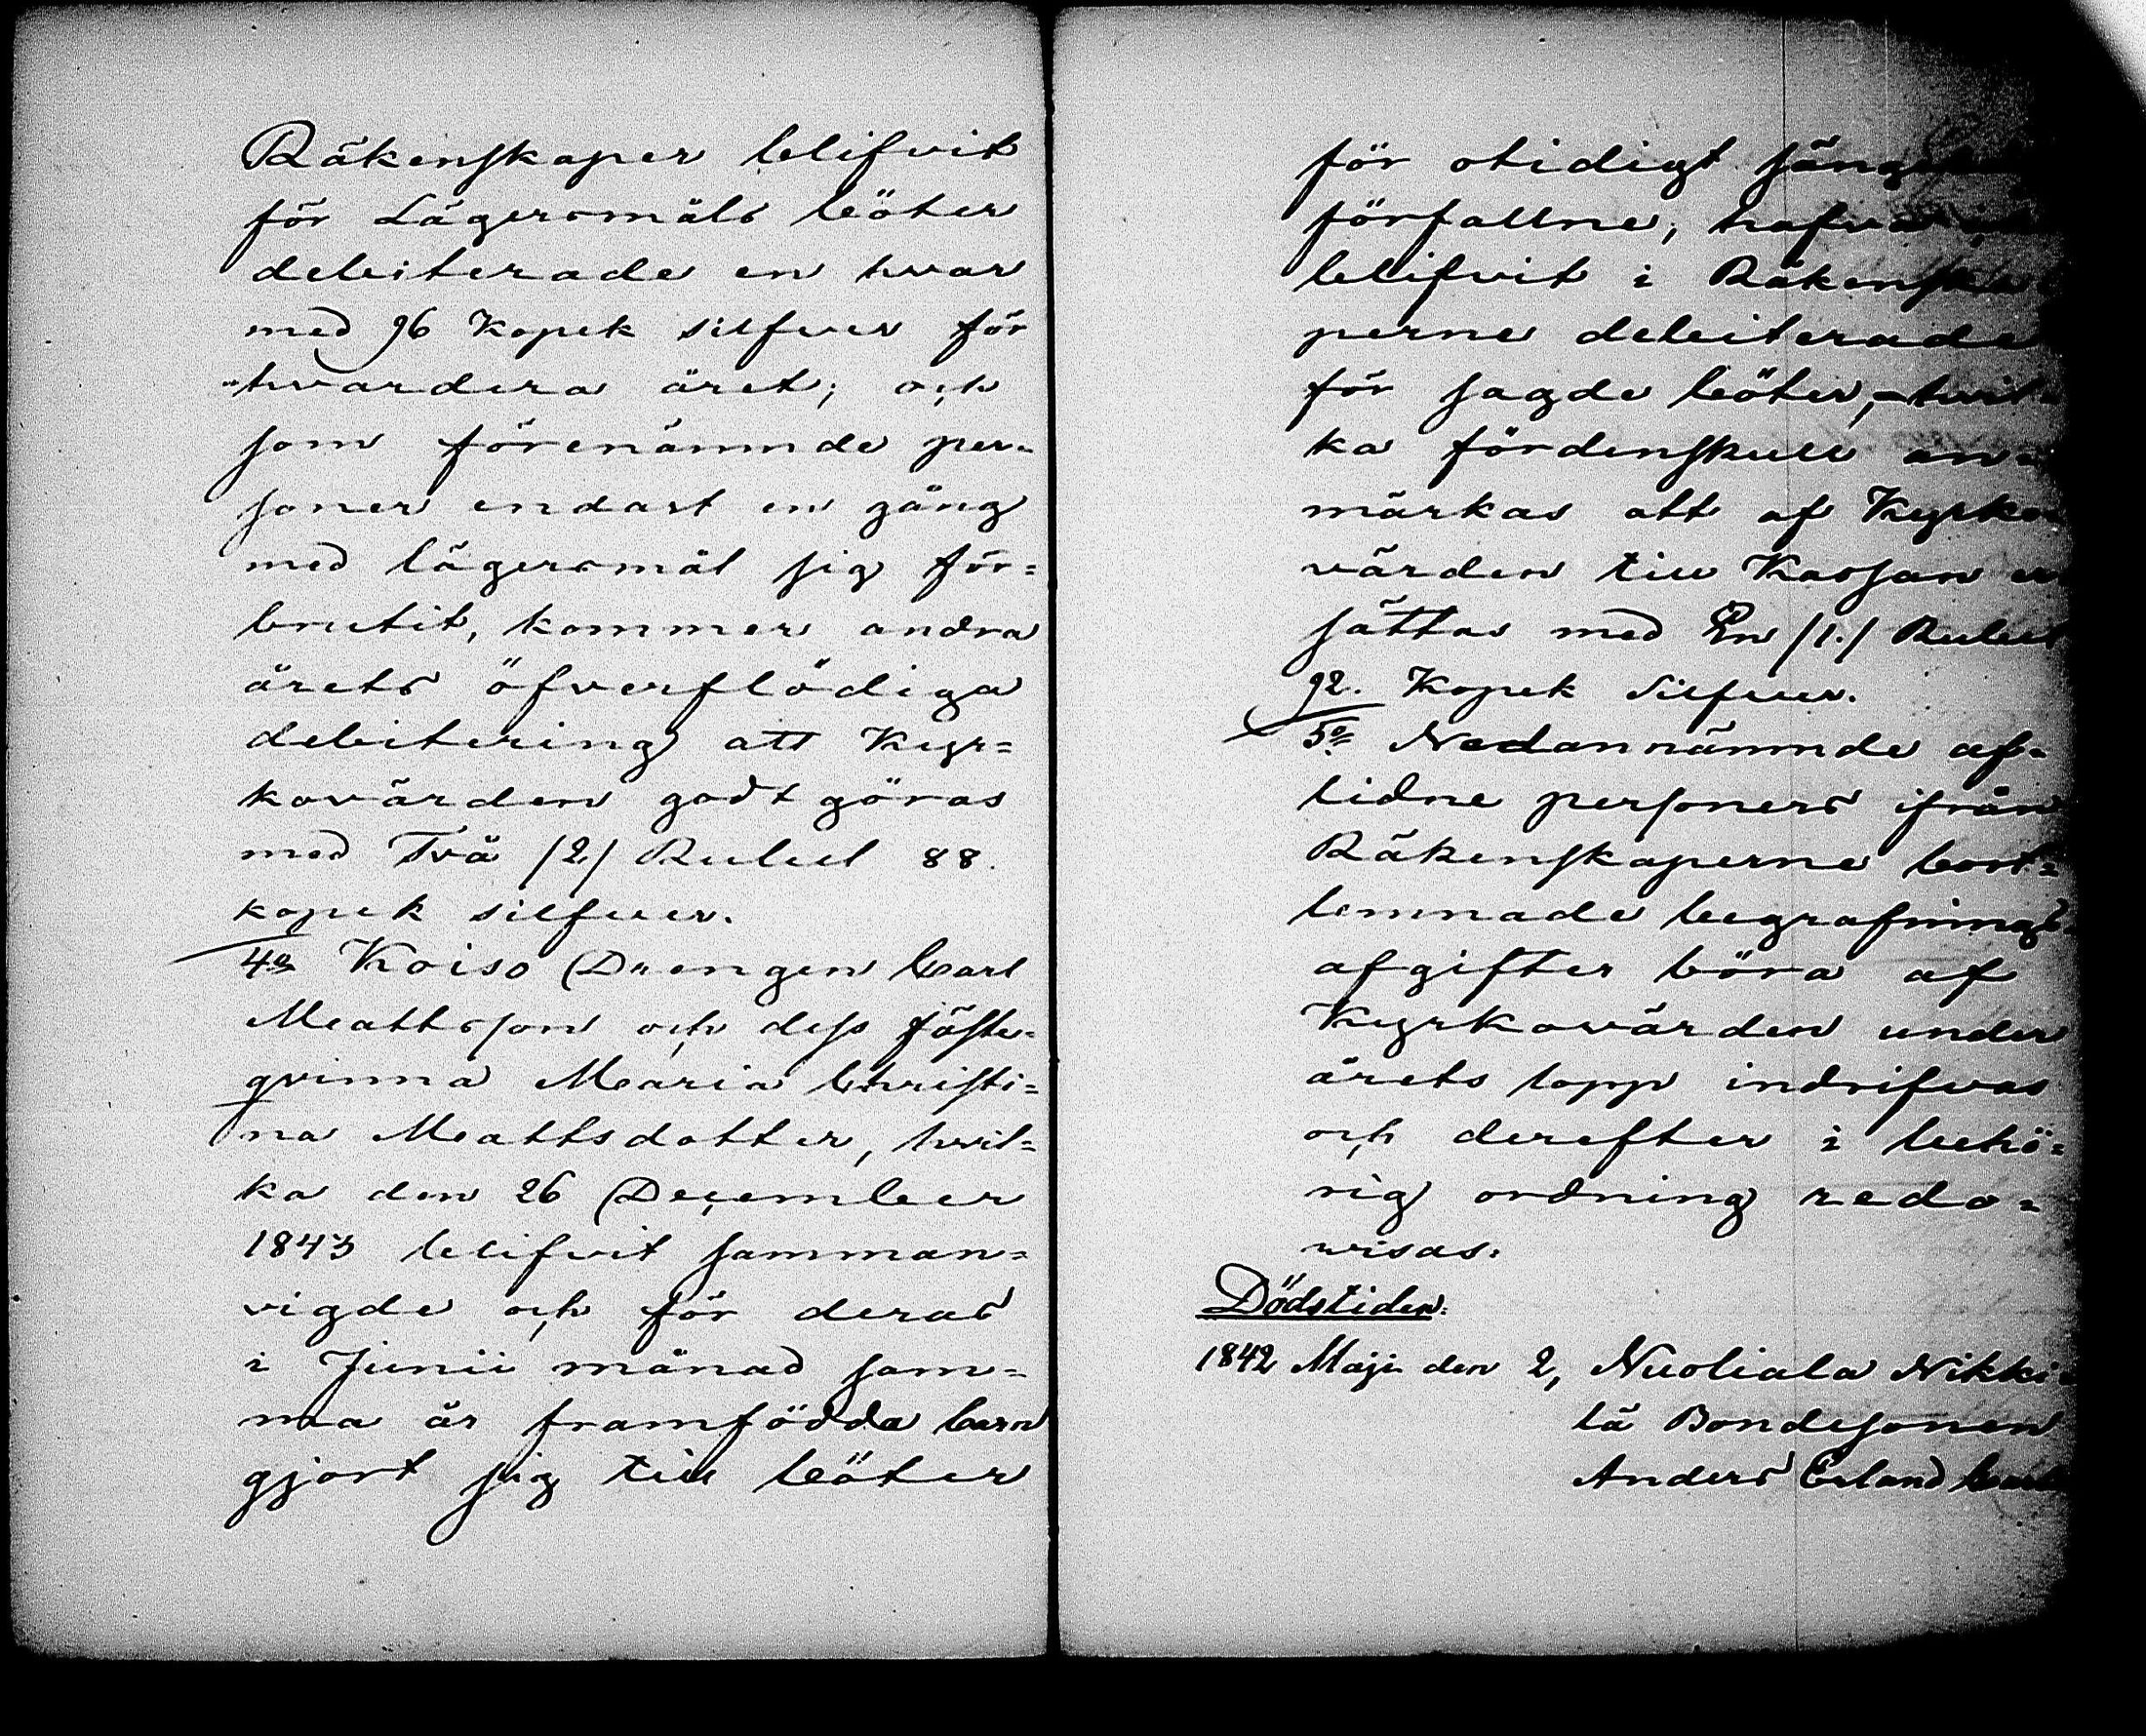 Räkenskaper blifvit
för Lägersmåls böter
debiterade en hvar
med 96 Kopek silfver för
hvardera året; och
som förenämnde per=
soner endast en gång
med lägersmål sig för=
brutit, kommer andra
årets öfverflödiga
debitering att Kyr=
kovärden godtgöras
med Två /2/ Rubel 88.
kopek silfver.
4o Koiso Drengen Carl
Mattsson och dess fäste=
qvinna Maria Christi=
na Mattsdotter, hvil=
ka den 26 December
1843 blifvit samman=
vigde och för deras
i Junii månad sam=
ma år framfödda barn
gjort sig till böter
för otidigt
förfallne, hafva
blifvit i Räkenska
perne debiterade
för sagde böter, hvil=
ka fördenskull an=
märkas att af Kyrko=
värden till Kassan er
sättas med En /1./ Rubel
92. Kopek Silfver.
5o Nedannämnde af=
lidne personers ifrån
Räkenskaperne bort=
lemnade begrafnings
afgifter böra af
Kyrkovärden under
årets lopp indrifvas
och derefter i behö=
rig ordning redo=
visas.
Dödstiden.
1842 Maji den 2, Nuoliala Nikki
lä Bondesonen
Anders Erland